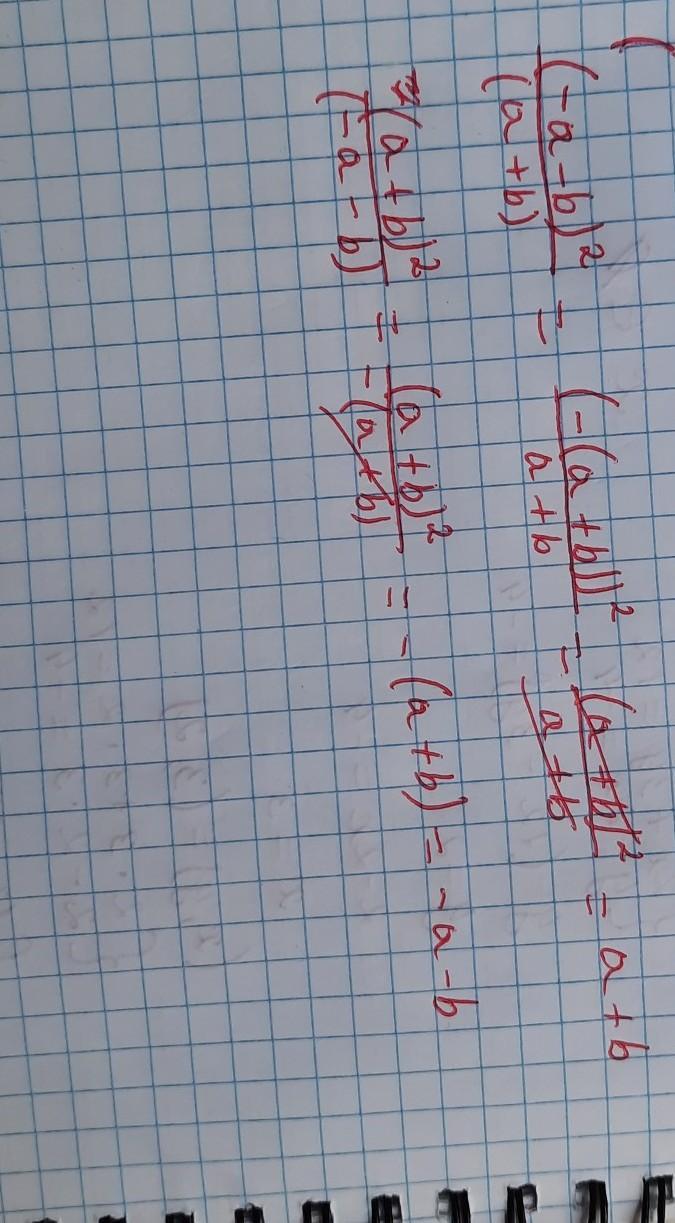 (-a-b)²/(a+b) = (-(a+b))²/a+b = (a+b)²/a+b = a+b
(a+b)²/(-a-b) = (a+b)²/-(a+b) = -(a+b) = -a-b